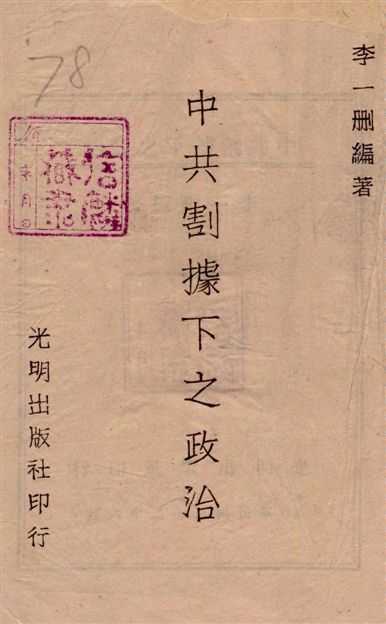 李一删編著
中共割據下之政治
光明出版社印行
78